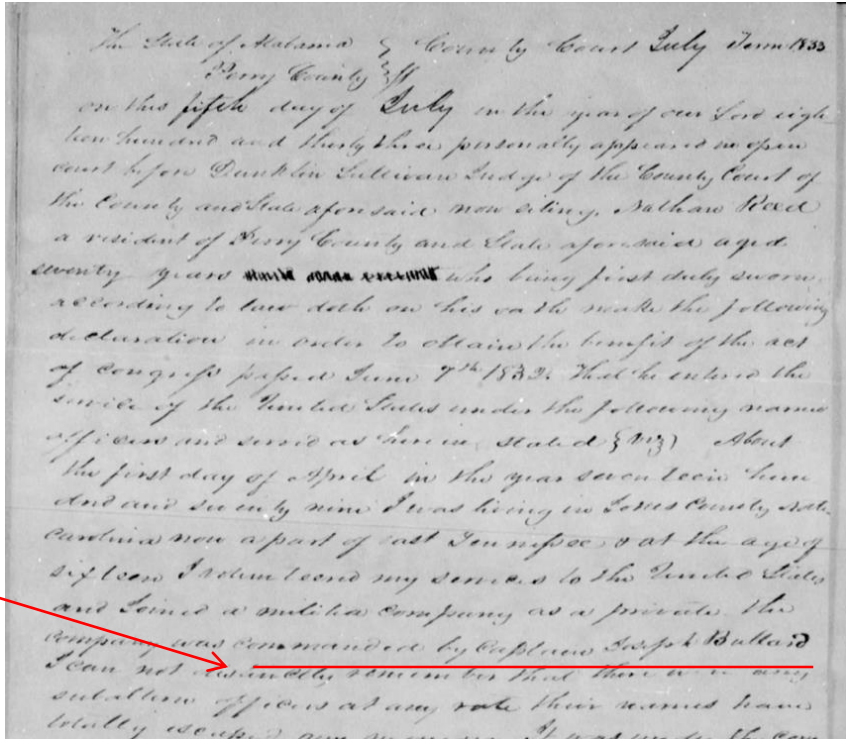 The State of Alabama } County Court July Term 1833
Perry County } ss
on this fifth day of July in the year of our Lord eigh
teen hundred and thirty three personally appeared in open
court before Dunklin Sullivan Judge of the County Court of
the County and State aforesaid now siting, Nathan Reed
a resident of Perry County and State aforesaid aged
seventy years who being first duly sworn
according to law doth on his oath make the following
declaration in order to obtain the benefit of the act
of congress passed June 7th 1832. That he entered the
service of the United States under the following named
officers and served as herein stated { viz) About
the first day of April in the year seventeen hun
dred and seventy nine I was living in County North
Carolina now a part of east Tennessee & at the age of
sixteen I volunteered my services to the United States
and Joined a militia company as a private the
company was commanded by Captain Joseph Bullard
I can not distinctly remember that there were any
subaltern officers at any rate their names have
totally escaped my memory. It was under the com